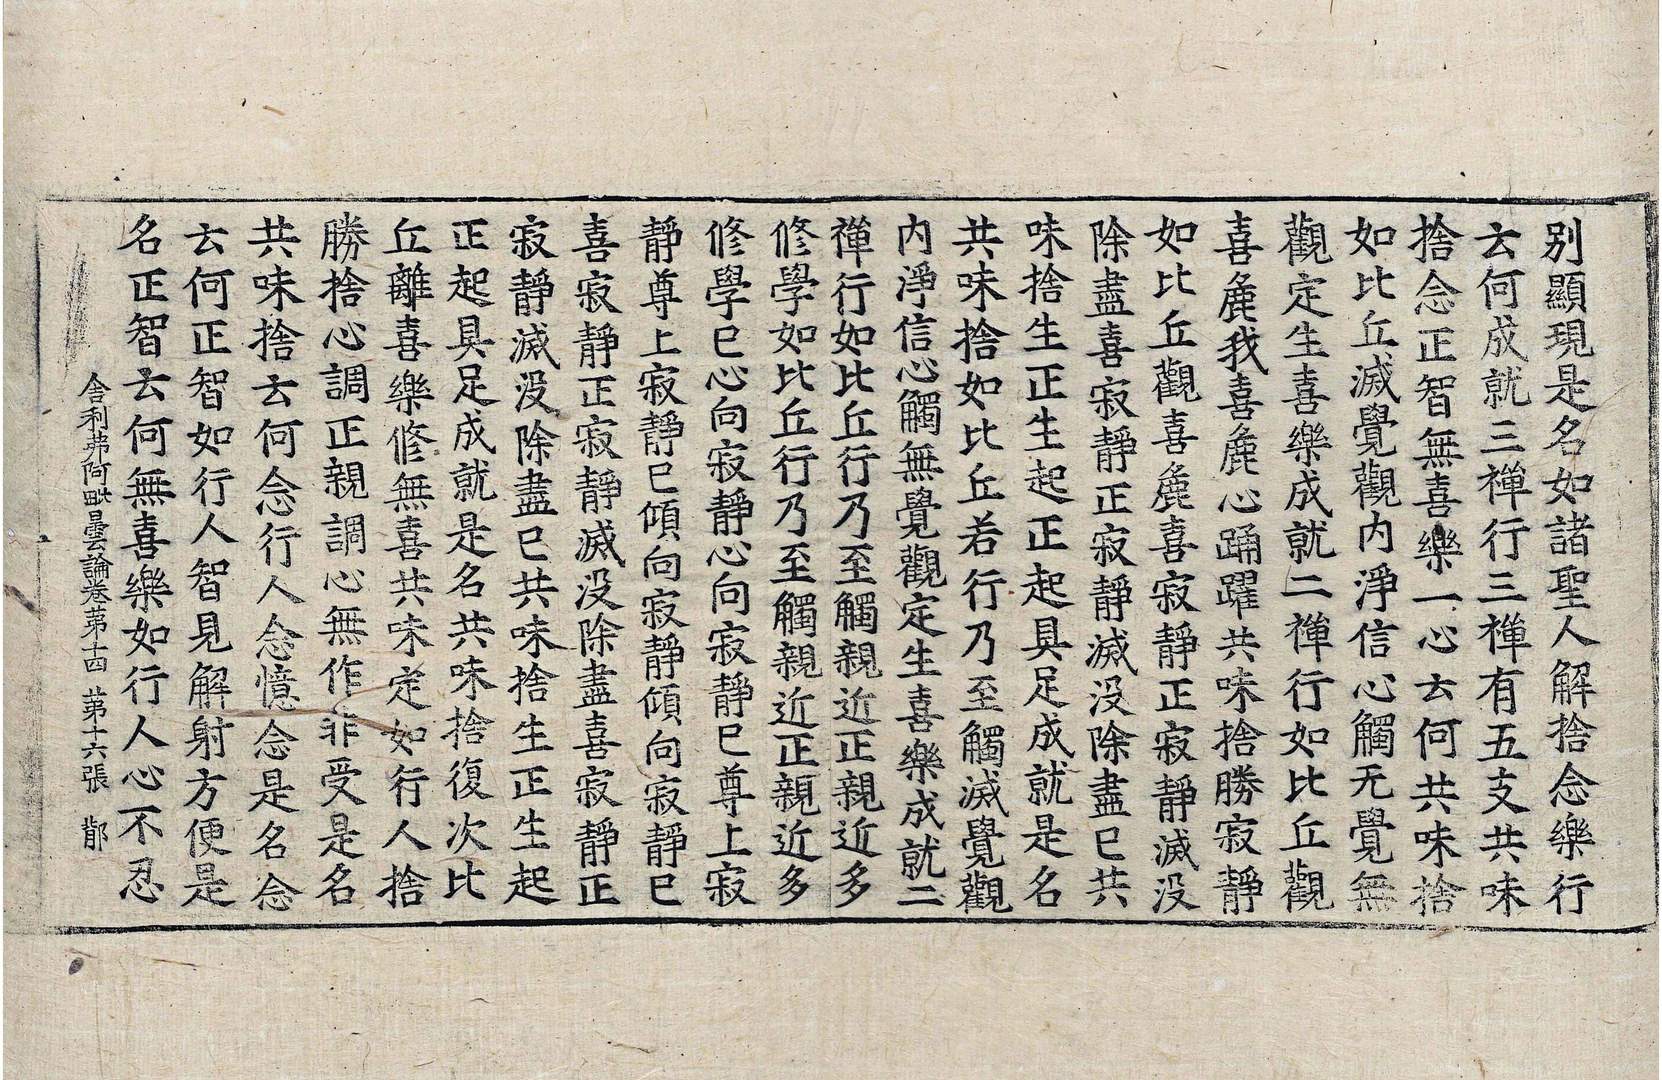 別顯現是名如諸聖人解捨念樂行
云何成就三禪行三禪有五支共味
捨念正智無喜樂一心云何共味捨
如比丘滅覺觀內淨信心觸无覺無
觀定生喜樂成就二禪行如比丘觀
喜麁我喜麁心踊躍共味捨勝寂靜
如比丘觀喜麁喜寂靜正寂靜滅没
除盡喜寂靜正寂靜滅没除盡已共
味捨生正生起正起具足成就是名
共味捨如比丘若行乃至觸滅覺觀
內淨信心觸無覺觀定生喜樂成就二
禪行如比丘行乃至觸親近正親近多
修學如比丘行乃至觸親近正親近多
修學已心向寂靜心向寂靜已尊上寂
靜尊上寂靜已傾向寂靜傾向寂靜已
喜寂靜正寂靜滅没除盡喜寂靜正
寂靜滅没除盡已共味捨生正生起
正起具足成就是名共味捨復次比
丘離喜樂修無喜共味定如行人捨
勝捨心調正親調心無作非受是名
共味捨云何念行人念憶念是名念
云何正智如行人智見解射方便是
名正智云何無喜樂如行人心不忍
舍利弗阿毗曇論卷第十四 第十六張 鄁